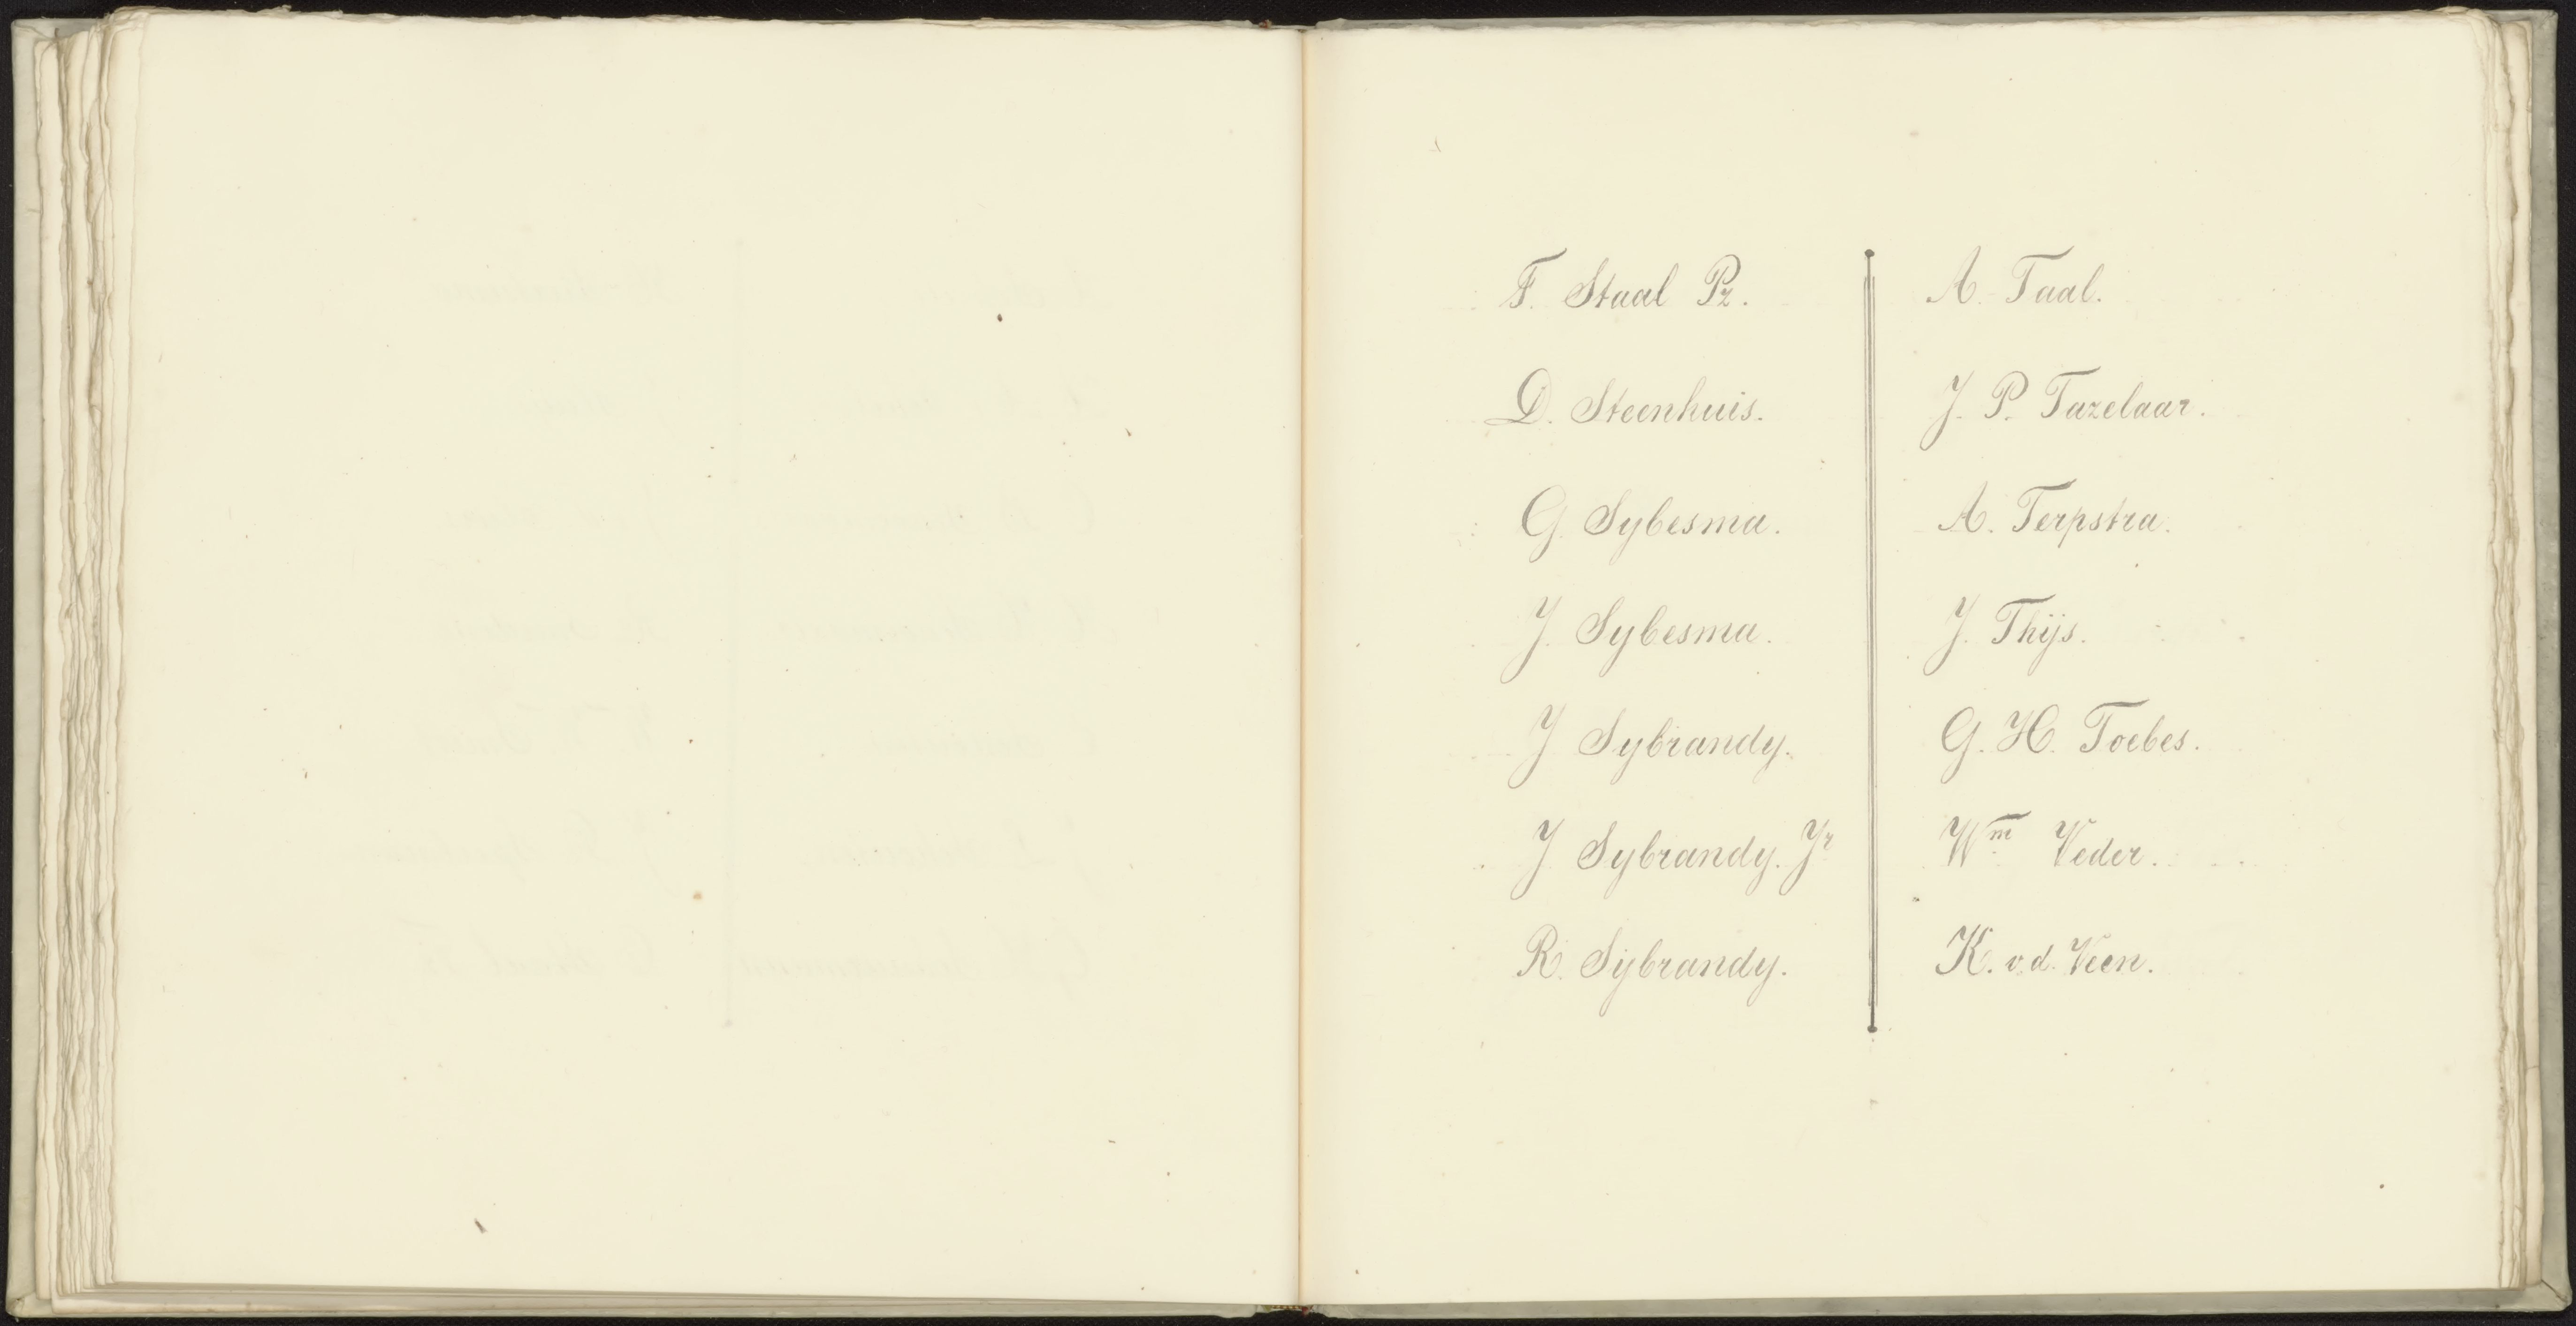 F. Staal Pz.
D. Steenhuis.
G. Sybesma.
J. Sybesma.
J Sybrandy.
J Sybrandy. Jr
R. Sybrandy.
A. Taal.
J. P. Tazelaar.
A. Terpstra.
J. Thijs.
G. H. Toebes.
Wm Veder.
K. v.d. Veen.